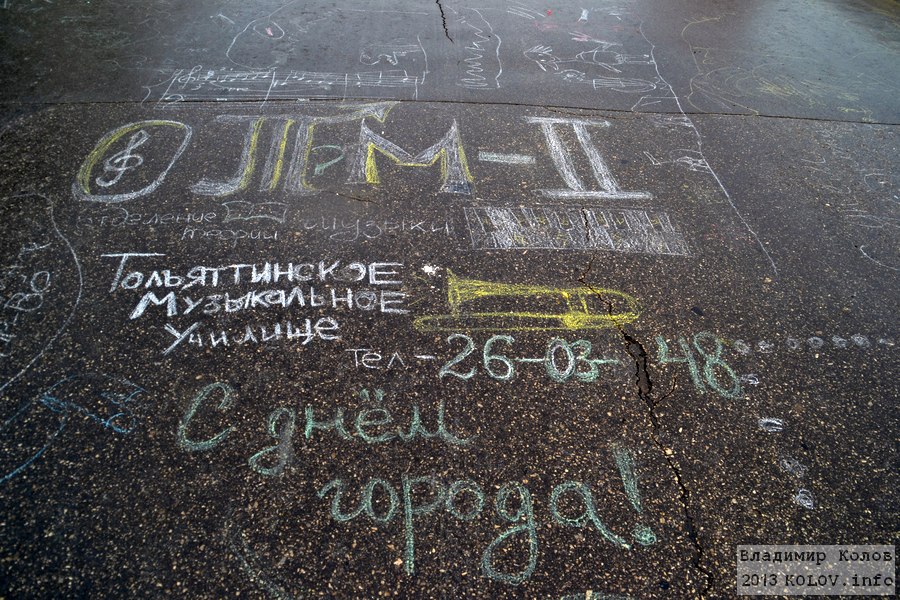 ОТМ-II
отделение
теории музыки
Тольяттинское
Музыкальное
Училище
тел- 26-03-48
С днём
города!
Владимир Колов
2013 KOLOV.info